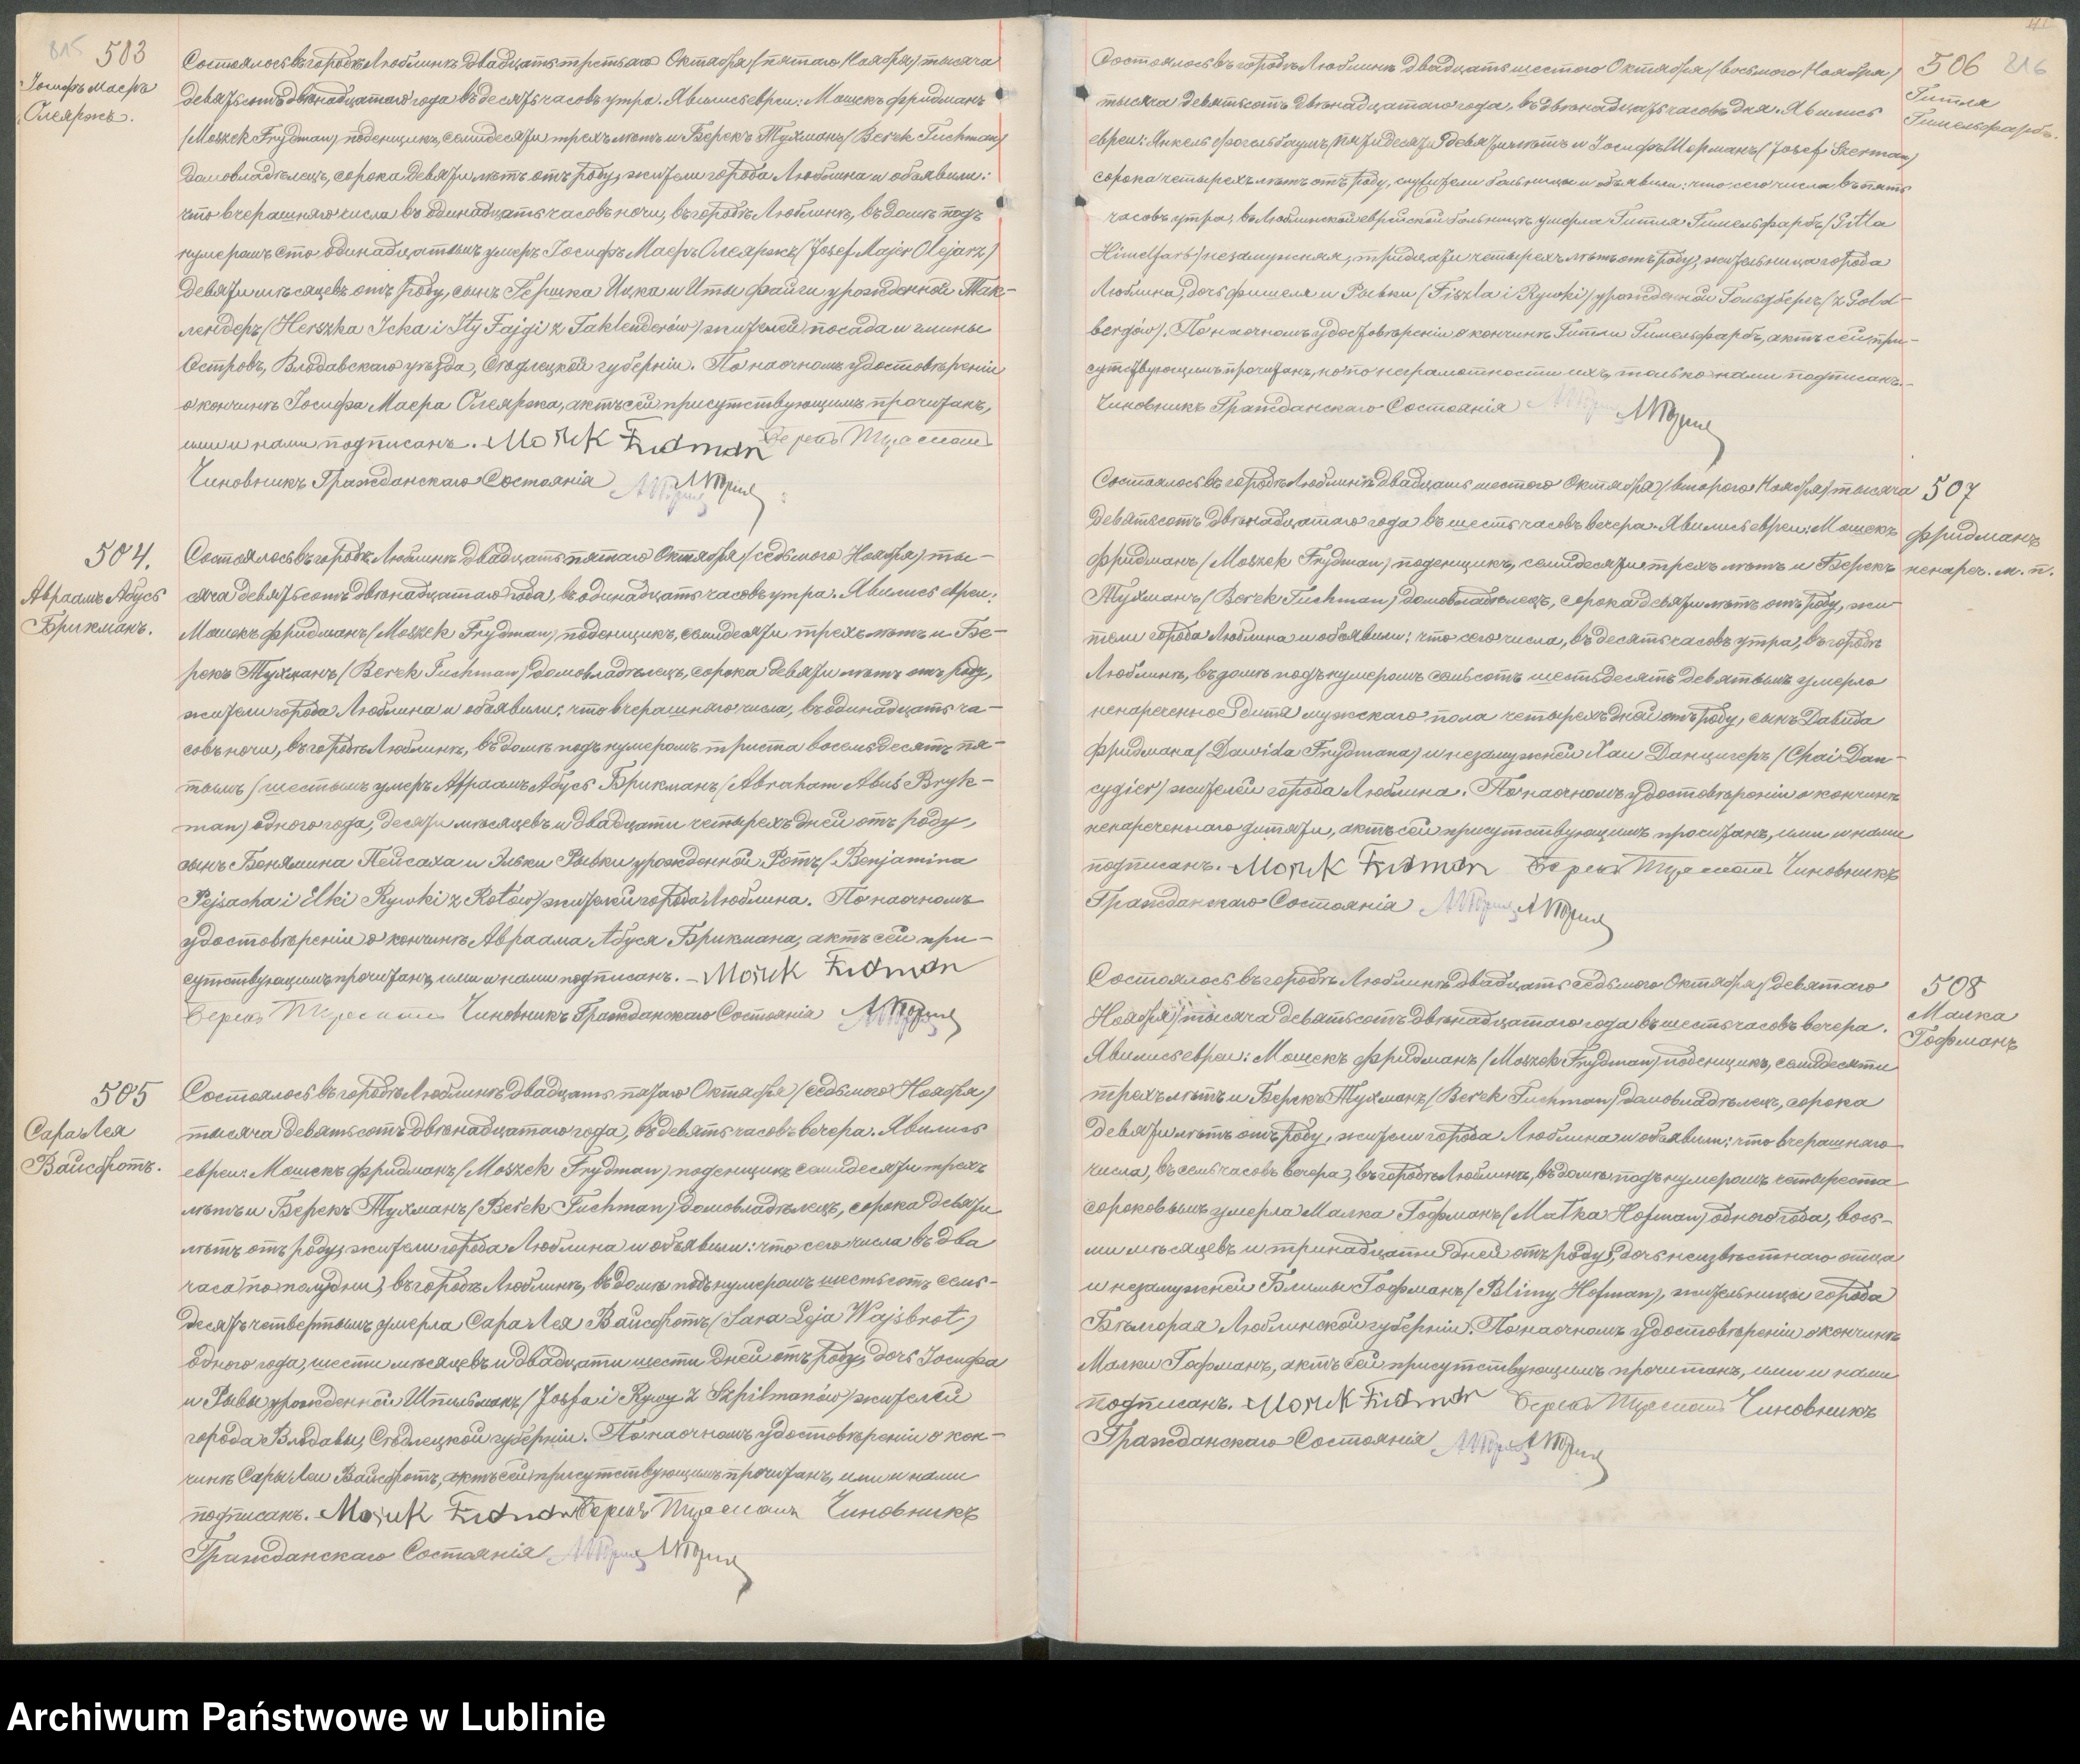 815 503
Іосифъ Маеръ
Олеяржъ.
Состоялось въ городѣ Люблинѣ двадцать третьяго Октября (пятаго Ноября) тысяча
девятьсотъ двѣнадцатаго года въ десять часовъ утра. Явились евреи: Мошекъ Фридманъ
(Moszek Frydman) поденщикъ, семидесяти трехъ лѣтъ и Берекъ Тухманъ (Berek Tuchman)
домовладѣлецъ, сорока девяти лѣтъ отъ роду, жители города Люблина и объявили:
что вчерашняго числа въ одинадцать часовъ ночи, въ городѣ Люблинѣ, въ домѣ подъ
нумеромъ сто одинадцатымъ умеръ Іосифъ Маеръ Олеяржъ (Josef Majer Olejarz)
девяти мѣсяцевъ отъ роду, сынъ Гершка Ицка и Иты Файги урожденной Так-
лендеръ (Herszka Icka i Ity Fajgi z Taklenderów) жителей посада и гмины
Островъ, Влодавскаго уѣзда, Сѣдлецкой губерніи. По наочномъ удостовѣреніи
о кончинѣ Іосифа Маера Олеяржа, актъ сей присутствующимъ прочитанъ,
ими и нами подписанъ. Moszek Fridman Берекъ Тухманъ
Чиновникъ Гражданскаго Состоянія
504.
Авраамъ Абусъ
Брикманъ.
Состоялось въ городѣ Люблинѣ двадцать пятаго Октября (седьмого Ноября) ты-
сяча девятьсотъ двѣнадцатаго года, въ одинадцать часовъ утра. Явились евреи:
Мошекъ Фридманъ (Moszek Frydman) поденщикъ, семидесяти трехъ лѣтъ и Бе-
рекъ Тухманъ (Berek Tuchman) домовладѣлецъ, сорока девяти лѣтъ отъ роду,
жители города Люблина и объявили: что вчерашняго числа, въ одинадцать ча-
совъ ночи, въ городѣ Люблинѣ, въ домѣ подъ нумеромъ триста восемьдесятъ пя-
тымъ (шестымъ умеръ Авраамъ Абусъ Брикманъ (Abraham Abuś Bryk-
man) одного года, десяти мѣсяцевъ и двадцати четырехъ дней отъ роду,
сынъ Беньямина Пейсаха и Эльки Рывки урожденной Ротъ (Benjamina
Pejsacha i Elki Rywki z Rotów) жителей города Люблина. По наочномъ
удостовѣреніи о кончинѣ Авраама Абуся Брикмана, актъ сей при-
сутствующимъ прочитанъ, ими и нами подписанъ. – Moszek Fridman
Берекъ Тухманъ Чиновникъ Гражданскаго Состоянія
505
Сара Лея
Вайсбротъ.
Состоялось въ городѣ Люблинѣ двадцать пятаго Октября (седьмого Ноября)
тысяча девятьсотъ двѣнадцатаго года, въ девять часовъ вечера. Явились
евреи: Мошекъ Фридманъ (Moszek Frydman) поденщикъ семидесяти трехъ
лѣтъ и Берекъ Тухманъ (Berek Tuchman) домовладѣлецъ, сорока девяти
лѣтъ отъ роду, жители города Люблина и объявили: что сего числа въ два
часа по полудни, въ городѣ Люблинѣ, въ домѣ подъ нумеромъ шестьсотъ семь-
десятъ четвертымъ умерла Сара Лея Вайсбротъ (Sara Leja Wajsbrot)
одного года, шести мѣсяцевъ и двадцати шести дней отъ роду, дочь Іосифа
и Рывы урожденной Шпильманъ (Josfa i Rywy z Szpilmanów) жителей
города Влодавы, Сѣдлецкой губерніи. По наочномъ удостовѣреніи о кон-
чинѣ Сары Леи Вайсбротъ, актъ сей присутствующимъ прочитанъ, ими и нами
подписанъ. Moszek Fridman Берекъ Тухманъ Чиновникъ
Гражданскаго Состоянія
506 816
Гитля
Гимельфарбъ.
Состоялось въ городѣ Люблинѣ двадцать шестого Октября (восьмого Ноября)
тысяча девятьсотъ двѣнадцатаго года, въ двѣнадцать часовъ дня. Явились
евреи: Янкель Фогельбаумъ, пятидесяти девяти лѣтъ и Іосифъ Шерманъ (Josef Szerman)
сорока четырехъ лѣтъ отъ роду, служители больницы и объявили: что сего числа въ пять
часовъ утра, въ Люблинской еврейской больницѣ умерла Гитля Гимельфарбъ (Gitla
Himelfarb) незамужняя, тридцати четырехъ лѣтъ отъ роду, жительница города
Люблина, дочь Фишеля и Рывки (Fiszla i Rywki) урожденной Гольдбергъ (z Gold-
bergów). По наочномъ удостовѣреніи о кончинѣ Гитли Гимельфарбъ, актъ сей при-
сутствующимъ прочитанъ, но по неграмотности ихъ, только нами подписанъ.
Чиновникъ Гражданскаго Состоянія
507
Фридманъ
ненареч. м. п.
Состоялось въ городѣ Люблинѣ двадцать шестого Октября (второго Ноября) тысяча
девятьсотъ двѣнадцатаго года въ шесть часовъ вечера. Явились евреи: Мошекъ
Фридманъ (Moszek Frydman) поденщикъ, семидесяти трехъ лѣтъ и Берекъ
Тухманъ (Berek Tuchman) домовладѣлецъ, сорока девяти лѣтъ отъ роду, жи-
тели города Люблина и объявили: что сего числа, въ десять часовъ утра, въ городѣ
Люблинѣ, въ домѣ подъ нумеромъ семьсотъ шестьдесятъ девятымъ умерло
ненареченное дитя мужскаго пола четырехъ дней отъ роду, сынъ Давида
Фридмана (Dawida Frydmana) и незамужней Хаи Данцигеръ (Chai Dan-
cygier) жителей города Люблина. По наочномъ удостовѣреніи о кончинѣ
ненареченнаго дитяти, актъ сей присутствующимъ прочитанъ, ими и нами
подписанъ. Moszek Fridman Берекъ Тухманъ Чиновникъ
Гражданскаго Состоянія
508
Малка
Гофманъ
Состоялось въ городѣ Люблинѣ двадцать седьмого Октября (девятаго
Ноября) тысяча девятьсотъ двѣнадцатаго года въ шесть часовъ вечера.
Явились евреи: Мошекъ Фридманъ (Moszek Frydman) поденщикъ, семидесяти
трехъ лѣтъ и Берекъ Тухманъ (Berek Tuchman) домовладѣлецъ, сорока
девяти лѣтъ отъ роду, жители города Люблина и объявили: что вчерашняго
числа, въ семь часовъ вечера, въ городѣ Люблинѣ, въ домѣ подъ нумеромъ четыреста
сороковымъ умерла Малка Гофманъ (Małka Hofman) одного года, вось-
ми мѣсяцевъ и тринадцати дней отъ роду, дочь неизвѣстнаго отца
и незамужней Блимы Гофманъ (Blimy Hofman), жительницы города
Бѣлгорая Люблинской губерніи. По наочномъ удостовѣреніи о кончинѣ
Малки Гофманъ, актъ сей присутствующимъ прочитанъ, ими и нами
подписанъ. Moszek Fridman Берекъ Тухманъ Чиновникъ
Гражданскаго Состоянія
Archiwum Państwowe w Lublinie